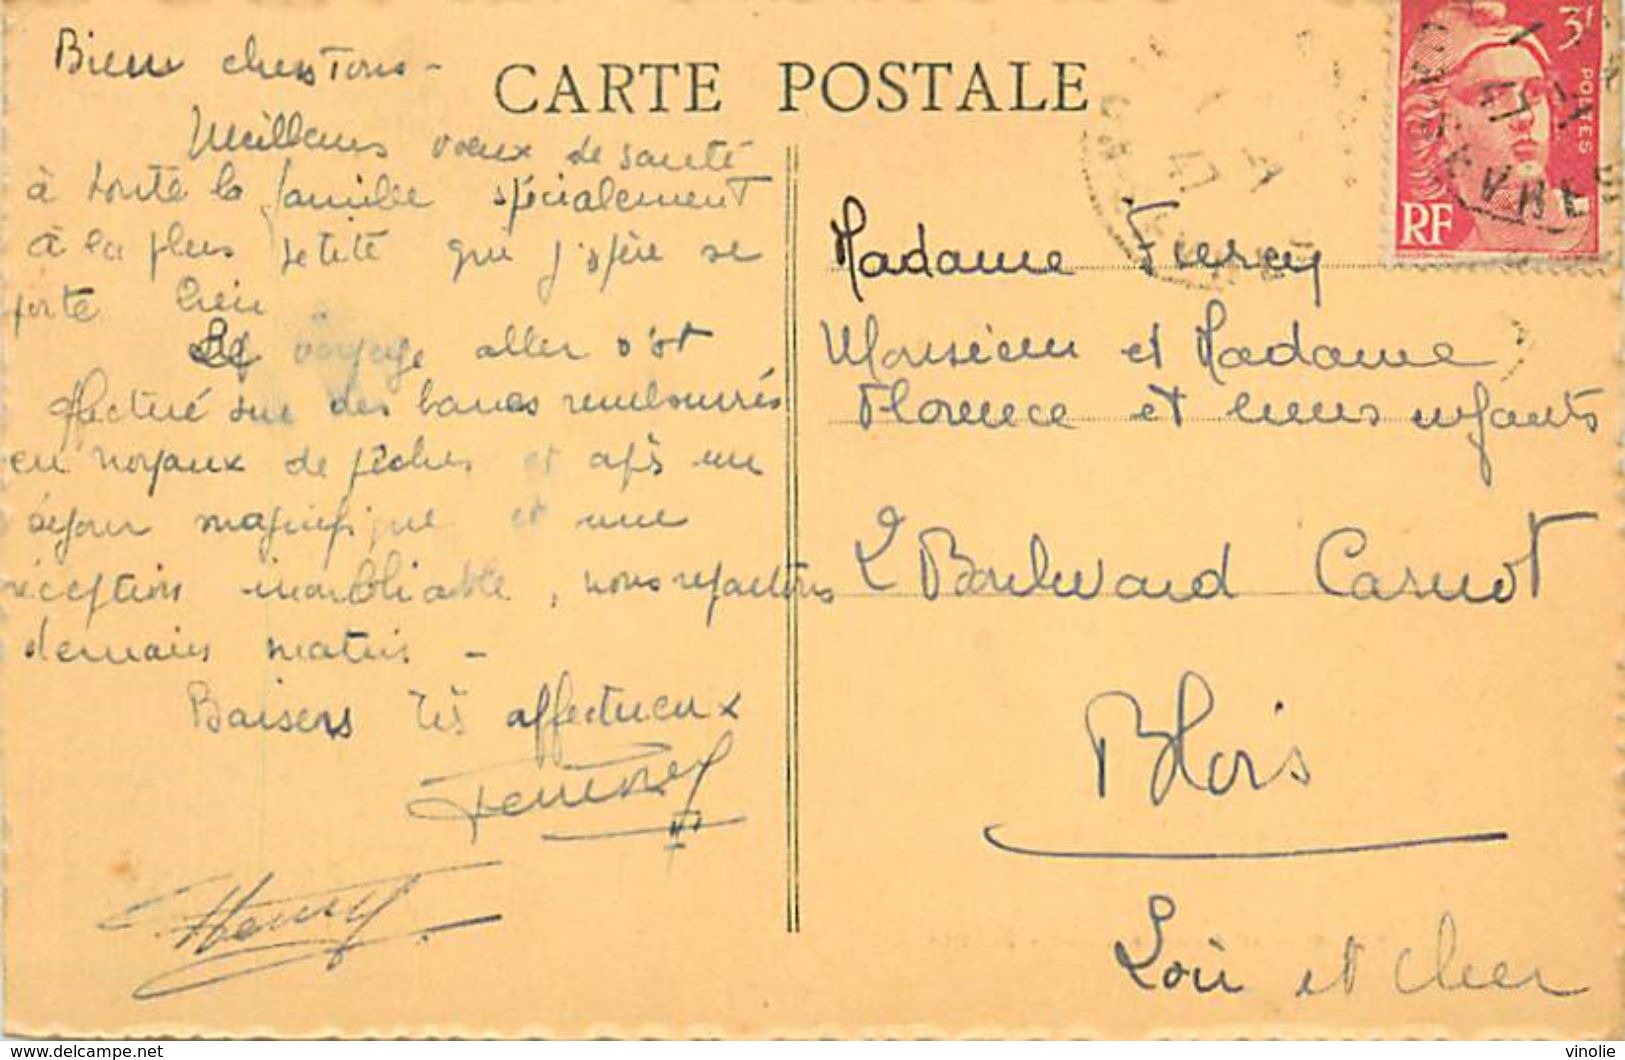 Bien chers Tous -
CARTE POSTALE
Meilleurs voeux de santé
à toute la famille spécialement
à la plus petite qui j'espère se
porte bien
Le voyage aller s'est
effectué sur des bancs rembourrés
en noyaux de pêches et après un
séjour magnifique et une
réception inoubliable, nous repartons
demain matin -
Baisers très affectueux
Henry
3f
POSTES
RF
47
Madame
Monsieur et Madame
Florence et leurs enfants
2 Boulevard Carnot
Blois
Loir et Cher
delcampe.net
vinolie